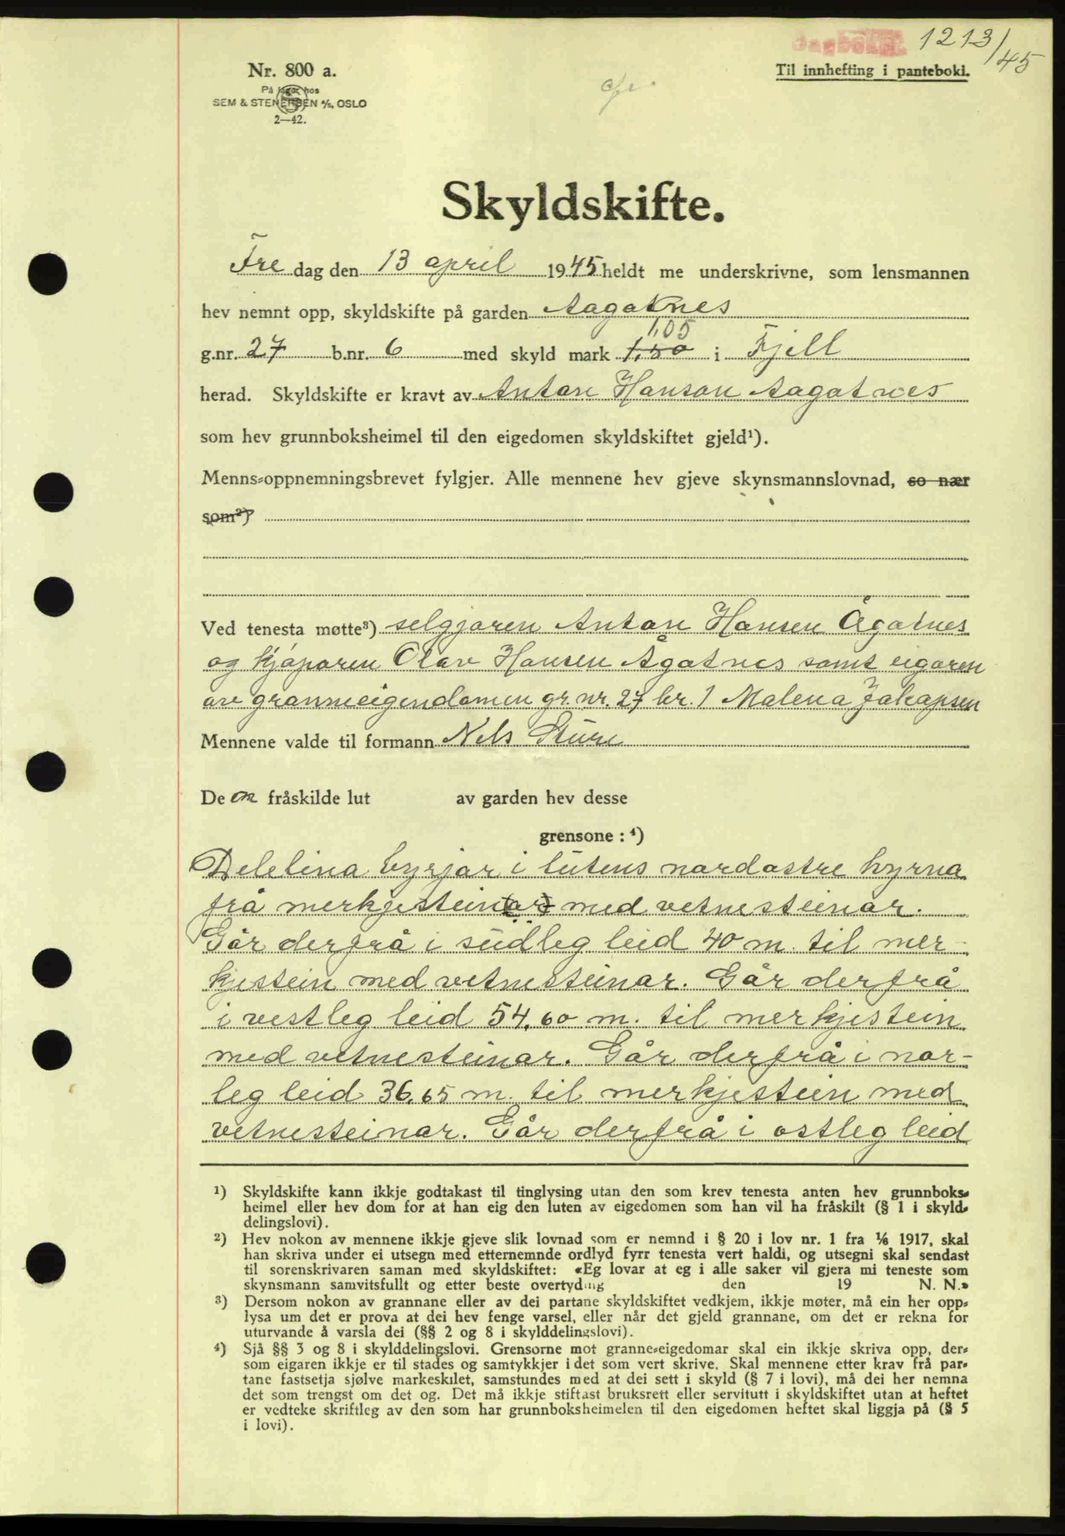 dagboknr. 1213/45
Nr. 800 a.
Til innhefting i panteboki.
På lager hos
SEM & STENERSEN A/S, OSLO
2—42.
Skyldskifte.
Fre dag den 13 april 1945 heldt me underskrivne, som lensmannen
hev nemnt opp, skyldskifte på garden Aagotnes
1,05
g.nr. 27 b.nr. 6 med skyld mark 1,50 i Fjell
herad. Skyldskifte er kravt av Anton Hanson Aagotnes
som hev grunnboksheimel til den eigedomen skyldskiftet gjeld¹).
Menns-oppnemningsbrevet fylgjer. Alle mennene hev gjeve skynsmannslovnad, so nær
som²)
Ved tenesta møtte³) selgjaren Anton Hansen Ågotnes
og kjøparen Olav Hansen Ågotnes samt eigaren
av grannieigendomen gr. nr. 27 br. 1 Malena Jakopsen
Mennene valde til formann Nils Sture
De en fråskilde lut av garden hev desse
grensone : ⁴)
Delelina byrjar i lutens nordostre hyrna
frå merkjestein(ar) med vetnesteinar.
Går derfrå i südleg leid 40 m. til mer-
kjestein med vetnesteinar. Går derfrå
i vestleg leid 54,60 m. til merkjestein
med vetnesteinar. Går derfrå i nor-
leg leid 36,65 m. til merkjestein med
vetnesteinar. Går derfrå i ostleg leid
¹) Skyldskifte kann ikkje godtakast til tinglysing utan den som krev tenesta anten hev grunnboks-
heimel eller hev dom for at han eig den luten av eigedomen som han vil ha fråskilt (§ 1 i skyld-
delingslovi).
²) Hev nokon av mennene ikkje gjeve slik lovnad som er nemnd i § 20 i lov nr. 1 fra 1/6 1917, skal
han skriva under ei utsegn med etternemnde ordlyd fyrr tenesta vert haldi, og utsegni skal sendast
til sorenskrivaren saman med skyldskiftet: «Eg lovar at eg i alle saker vil gjera mi teneste som
skynsmann samvitsfullt og etter beste overtyding den 19 N. N.»
³) Dersom nokon av grannane eller av dei partane skyldskiftet vedkjem, ikkje møter, må ein her opp-
lysa um det er prova at dei hev fenge varsel, eller når det gjeld grannane, om det er rekna for
uturvande å varsla dei (§§ 2 og 8 i skylddelingslovi).
⁴) Sjå §§ 3 og 8 i skylddelingslovi. Grensorne mot granne-eigedomar skal ein ikkje skriva opp, der-
som eigaren ikkje er til stades og samtykkjer i det som vert skrive. Skal mennene etter krav frå par-
tane fastsetja sjølve markeskilet, samstundes med at dei sett i skyld (§ 7 i lovi), må dei her nemna
det som trengst om det og. Det må ikkje stiftast bruksrett eller servitutt i skyldskiftet utan at heftet
er vedteke skriftleg av den som har grunnboksheimelen til den eigedomen heftet skal liggja på (§ 5
i lovi).